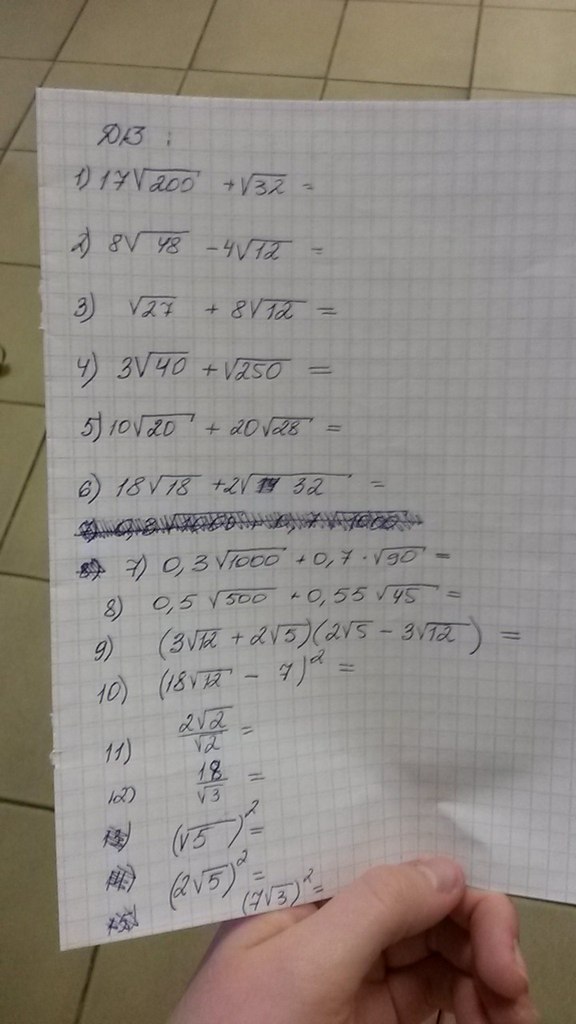 ДЗ:
1) 17√200 + √32 =
2) 8√48 - 4√12 =
3) √27 + 8√12 =
4) 3√40 + √250 =
5) 10√20 + 20√28 =
6) 18√18 + 2√32 =
7) 0,3√1000 + 0,7·√90 =
8) 0,5√500 + 0,55√45 =
9) (3√12 + 2√5)(2√5 - 3√12) =
10) (18√12 - 7)² =
11) 2√2/√2 =
12) 18/√3 =
(√5)² =
(2√5)² =
(7√3)² =